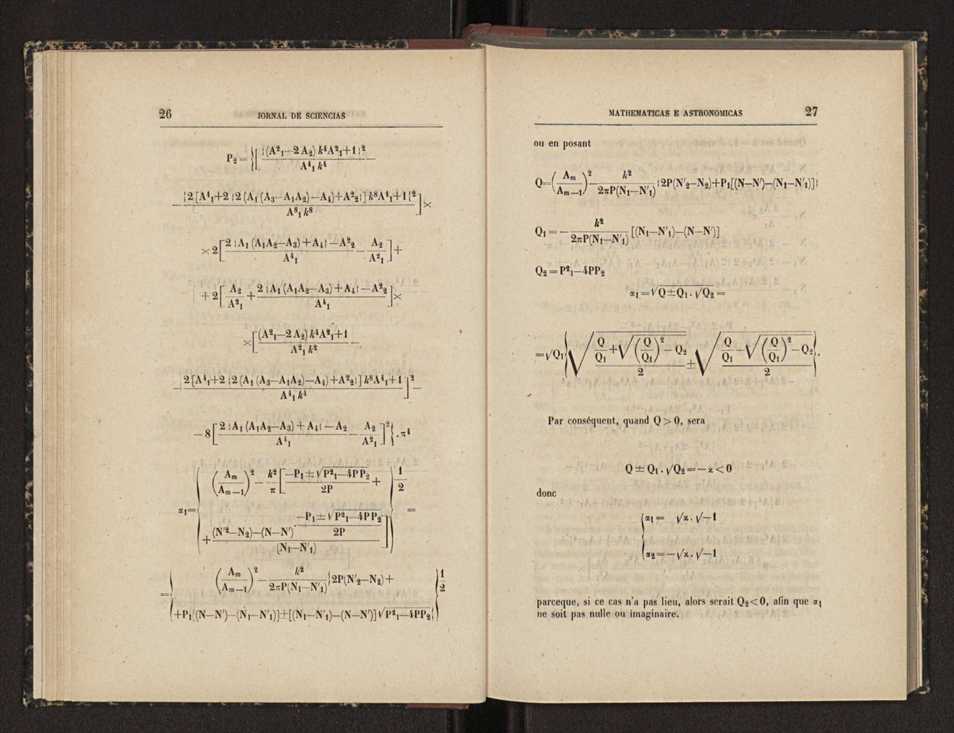 26 JORNAL DE SCIENCIAS
P₂ = {[ {(A²₁—2A₂) k⁴A²₁+1}² / A⁴₁ k⁴ —
— {2[A⁴₁+2{2(A₁(A₃—A₁A₂)—A₄)+A²₂}]k⁸A⁴₁+1}² / A⁸₁ k⁸ ]×
× 2[ 2{A₁(A₁A₂—A₃)+A₄}—A²₂ / A⁴₁ — A₂ / A²₁ ]+
+ 2[ A₂ / A²₁ + 2{A₁(A₁A₂—A₃)+A₄}—A²₂ / A⁴₁ ]×
×[ (A²₁—2A₂)k⁴A²₁+1 / A²₁ k² —
— 2[A⁴₁+2{2(A₁(A₃—A₁A₂)—A₄)+A²₂}]k⁸A⁴₁+1 / A⁴₁ k⁴ ]²—
— 8[ 2{A₁(A₁A₂—A₃)+A₄}—A₂ / A⁴₁ — A₂ / A²₁ ]²}.π⁴
α₁= { (Aₘ / Aₘ₋₁)² — k² / π [ —P₁±√P²₁—4PP₂ / 2P +
+ (N'²—N₂)—(N—N') —P₁±√P²₁—4PP₂ / 2P / (N₁—N'₁) ] } 1/2 =
= { (Aₘ / Aₘ₋₁)² — k² / 2πP(N₁—N'₁) {2P(N'₂—N₂)+
+P₁[(N—N')—(N₁—N'₁)]±[(N₁—N'₁)—(N—N')]√P²₁—4PP₂} } 1/2
MATHEMATICAS E ASTRONOMICAS 27
ou en posant
Q=(Aₘ / Aₘ₋₁)² — k² / 2πP(N₁—N'₁) {2P(N'₂—N₂)+P₁[(N—N')—(N₁—N'₁)]}
Q₁ = — k² / 2πP(N₁—N'₁) [(N₁—N'₁)—(N—N')]
Q₂ = P²₁—4PP₂
α₁=√Q±Q₁.√Q₂ =
=√Q₁{ √( Q/Q₁ +√(Q/Q₁)²—Q₂ / 2 ) ± √( Q/Q₁ —√(Q/Q₁)²—Q₂ / 2 ) }.
Par conséquent, quand Q > 0, sera
Q ± Q₁.√Q₂ = — z < 0
donc
{α₁ = √z.√—1
{α₂ = —√z.√—1
parceque, si ce cas n'a pas lieu, alors serait Q₂<0, afin que α₁
ne soit pas nulle ou imaginaire.